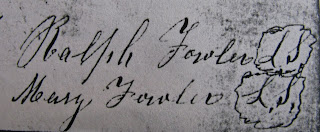 Ralph Fowler L.S.
Mary Fowler L.S.